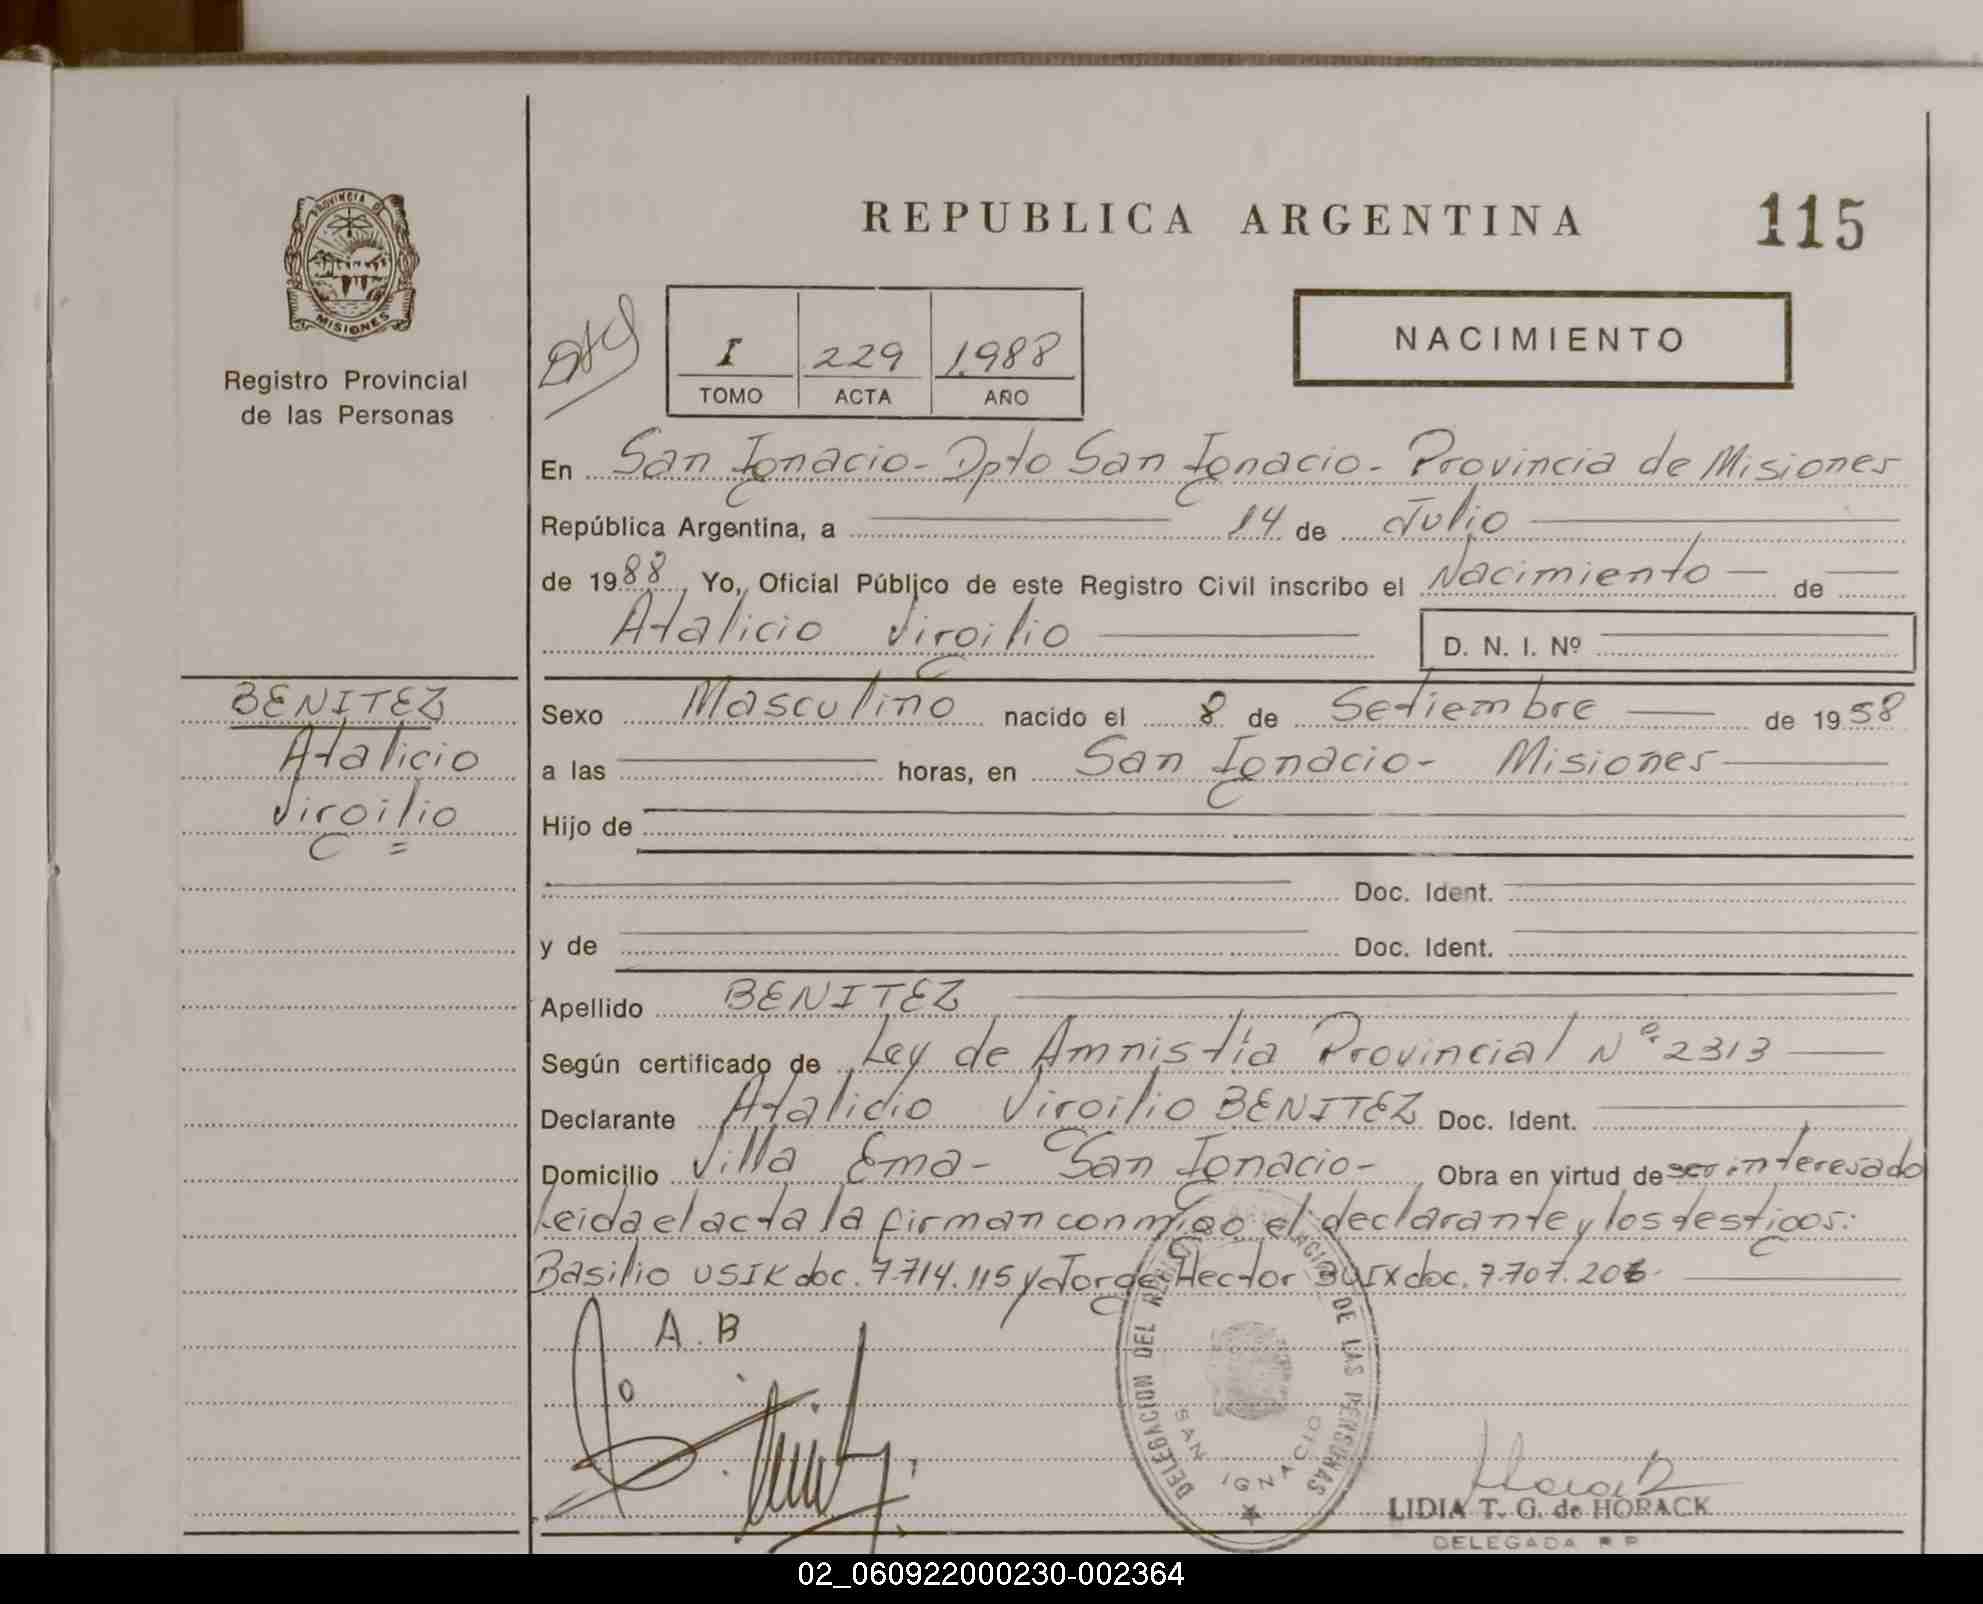 PROVINCIA DE
MISIONES
Registro Provincial
de las Personas
REPUBLICA ARGENTINA 115
I 229 1.988
TOMO ACTA AÑO
NACIMIENTO
En San Ignacio - Dpto San Ignacio - Provincia de Misiones
República Argentina, a 14 de Julio
de 1988, Yo, Oficial Público de este Registro Civil inscribo el Nacimiento de
Atalicio Virgilio D. N. I. Nº
BENITEZ
Atalicio
Virgilio =
Sexo Masculino nacido el 8 de Setiembre de 1958
a las horas, en San Ignacio - Misiones
Hijo de
Doc. Ident.
y de Doc. Ident.
Apellido BENITEZ
Según certificado de Ley de Amnistía Provincial Nº 2313
Declarante Atalicio Virgilio BENITEZ Doc. Ident.
Domicilio Villa Ema - San Ignacio - Obra en virtud de ser interesado
Leida el acta la firman conmigo el declarante y los testigos:
Basilio USIK doc. 7.714.115 y Jorge Hector BUIX doc. 7.707.206
A. B
DELEGACION DEL REGISTRO PROVINCIAL DE LAS PERSONAS
SAN IGNACIO
LIDIA T. G. de HORACK
DELEGADA R P
02_060922000230-002364